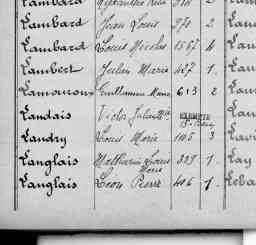 Lambard Alexandre
Lambard Jean Louis 970 2
Lambard Louis Nicolas 1567 4
Lambert Julien Marie 427 1
Lamouroux Guillaume Marie 613 2
Landais Victor Julien EXEMPTÉ
Landry Louis Marie 1105 3
Langlais Mathurin Louis Marie 229 1
Langlais Léon Pierre 406 1